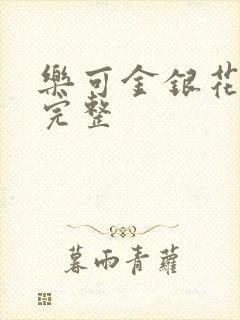 樂可金銀花
完整
暮雨青蘿